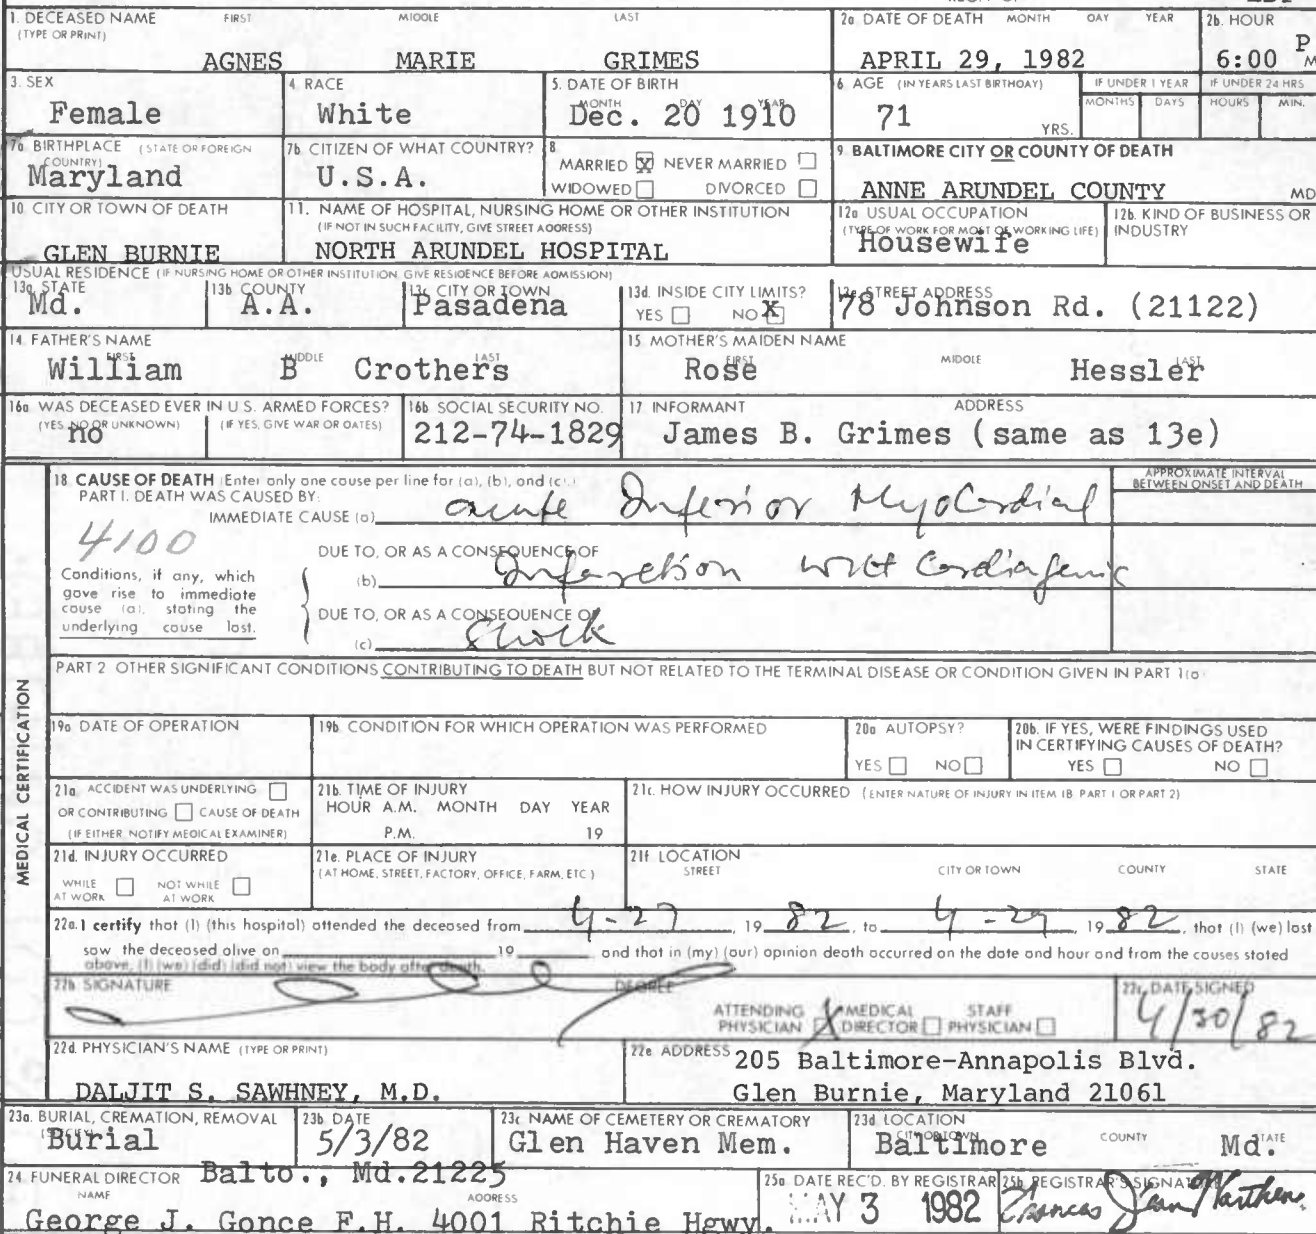 1. DECEASED NAME FIRST MIDDLE LAST
(TYPE OR PRINT)
AGNES MARIE GRIMES
2a. DATE OF DEATH MONTH DAY YEAR
APRIL 29, 1982
2b. HOUR
6:00 P M
3. SEX
Female
4. RACE
White
5. DATE OF BIRTH
MONTH DAY YEAR
Dec. 20 1910
6. AGE (IN YEARS LAST BIRTHDAY)
71 YRS.
IF UNDER 1 YEAR
MONTHS DAYS
IF UNDER 24 HRS
HOURS MIN.
7a. BIRTHPLACE (STATE OR FOREIGN COUNTRY)
Maryland
7b. CITIZEN OF WHAT COUNTRY?
U.S.A.
8
MARRIED X NEVER MARRIED
WIDOWED DIVORCED
9. BALTIMORE CITY OR COUNTY OF DEATH
ANNE ARUNDEL COUNTY MD
10. CITY OR TOWN OF DEATH
GLEN BURNIE
11. NAME OF HOSPITAL, NURSING HOME OR OTHER INSTITUTION
(IF NOT IN SUCH FACILITY, GIVE STREET ADDRESS)
NORTH ARUNDEL HOSPITAL
12a. USUAL OCCUPATION
(TYPE OF WORK FOR MOST OF WORKING LIFE)
Housewife
12b. KIND OF BUSINESS OR
INDUSTRY
USUAL RESIDENCE (IF NURSING HOME OR OTHER INSTITUTION GIVE RESIDENCE BEFORE ADMISSION)
13a. STATE
Md.
13b. COUNTY
A.A.
13c. CITY OR TOWN
Pasadena
13d. INSIDE CITY LIMITS?
YES NO X
13e. STREET ADDRESS
78 Johnson Rd. (21122)
14. FATHER'S NAME
FIRST MIDDLE LAST
William B Crothers
15. MOTHER'S MAIDEN NAME
FIRST MIDDLE LAST
Rose Hessler
16a. WAS DECEASED EVER IN U.S. ARMED FORCES?
(YES, NO OR UNKNOWN) (IF YES, GIVE WAR OR DATES)
no
16b. SOCIAL SECURITY NO.
212-74-1829
17. INFORMANT ADDRESS
James B. Grimes (same as 13e)
MEDICAL CERTIFICATION
18. CAUSE OF DEATH (Enter only one cause per line for (a), (b), and (c).)
PART I. DEATH WAS CAUSED BY:
IMMEDIATE CAUSE (a) acute Inferior Myocardial
APPROXIMATE INTERVAL
BETWEEN ONSET AND DEATH
4100
Conditions, if any, which
gave rise to immediate
cause (a), stating the
underlying cause last.
DUE TO, OR AS A CONSEQUENCE OF
(b) Infarction with Cardiogenic
DUE TO, OR AS A CONSEQUENCE OF
(c) Shock
PART 2 OTHER SIGNIFICANT CONDITIONS CONTRIBUTING TO DEATH BUT NOT RELATED TO THE TERMINAL DISEASE OR CONDITION GIVEN IN PART 1(a)
19a. DATE OF OPERATION
19b. CONDITION FOR WHICH OPERATION WAS PERFORMED
20a. AUTOPSY?
YES NO
20b. IF YES, WERE FINDINGS USED
IN CERTIFYING CAUSES OF DEATH?
YES NO
21a. ACCIDENT WAS UNDERLYING
OR CONTRIBUTING CAUSE OF DEATH
(IF EITHER, NOTIFY MEDICAL EXAMINER)
21b. TIME OF INJURY
HOUR A.M. MONTH DAY YEAR
P.M. 19
21c. HOW INJURY OCCURRED (ENTER NATURE OF INJURY IN ITEM 18 PART 1 OR PART 2)
21d. INJURY OCCURRED
WHILE AT WORK NOT WHILE AT WORK
21e. PLACE OF INJURY
(AT HOME, STREET, FACTORY, OFFICE, FARM, ETC)
21f. LOCATION
STREET CITY OR TOWN COUNTY STATE
22a. I certify that (I) (this hospital) attended the deceased from 4-27, 19 82, to 4-29 19 82, that (I) (we) last
saw the deceased alive on 19 and that in (my) (our) opinion death occurred on the date and hour and from the causes stated
above, (I) (we) (did) (did not) view the body after death.
22b. SIGNATURE DEGREE
ATTENDING PHYSICIAN X MEDICAL DIRECTOR STAFF PHYSICIAN
22c. DATE SIGNED
4/30/82
22d. PHYSICIAN'S NAME (TYPE OR PRINT)
DALJIT S. SAWHNEY, M.D.
22e. ADDRESS 205 Baltimore-Annapolis Blvd.
Glen Burnie, Maryland 21061
23a. BURIAL, CREMATION, REMOVAL
Burial
23b. DATE
5/3/82
23c. NAME OF CEMETERY OR CREMATORY
Glen Haven Mem.
23d. LOCATION
CITY OR TOWN COUNTY STATE
Baltimore Md.
24. FUNERAL DIRECTOR Balto., Md.21225
NAME ADDRESS
George J. Gonce F.H. 4001 Ritchie Hgwy.
25a. DATE REC'D. BY REGISTRAR
MAY 3 1982
25b. REGISTRAR'S SIGNATURE
Frances Jean Warthen